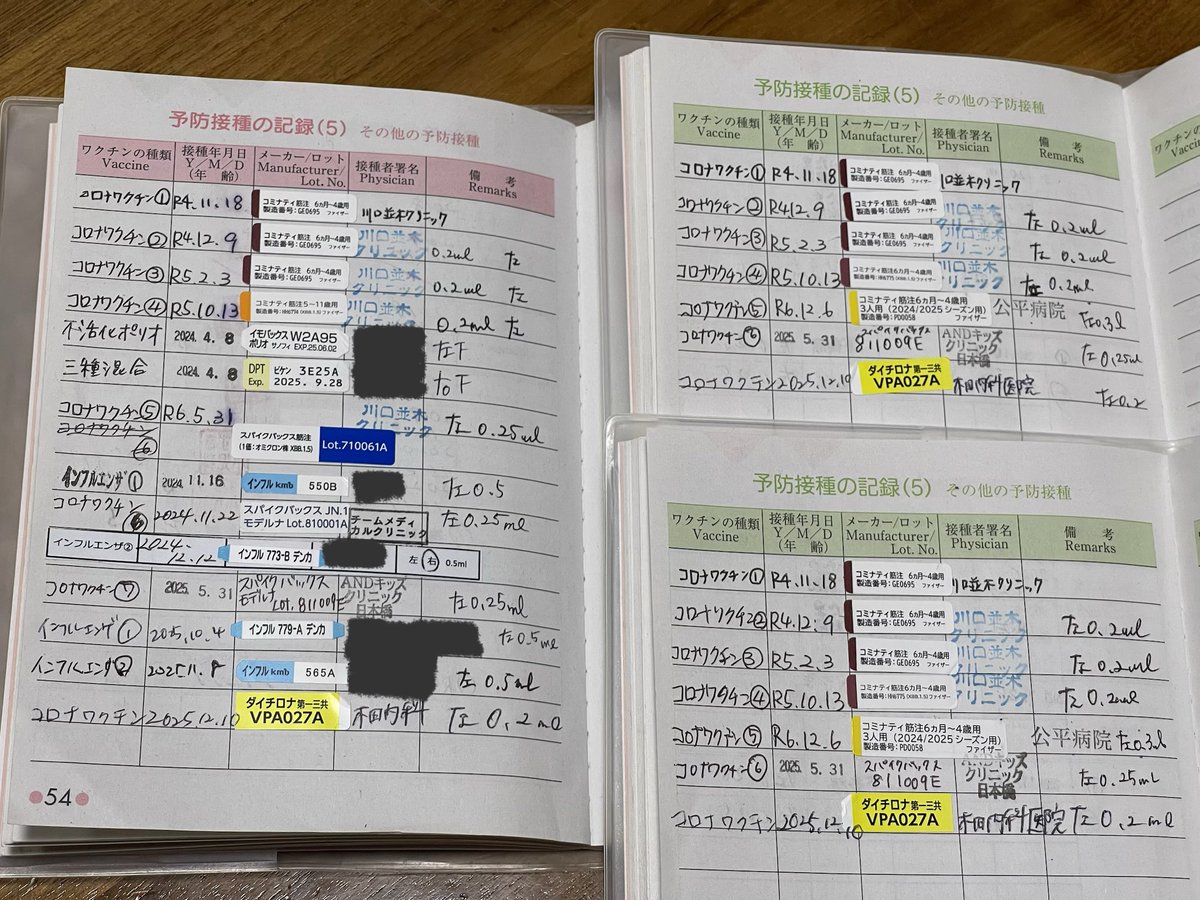 予防接種の記録(5) その他の予防接種
ワクチンの種類 Vaccine 接種年月日 Y/M/D (年 齢) メーカー/ロット Manufacturer/Lot. No. 接種者署名 Physician 備 考 Remarks
コロナワクチン① R4.11.18 コミナティ筋注 6ヵ月~4歳用 製造番号:GE0695 ファイザー 川口並木クリニック
コロナワクチン② R4.12.9 コミナティ筋注 6ヵ月~4歳用 製造番号:GE0695 ファイザー 川口並木クリニック 0.2ml 左
コロナワクチン③ R5.2.3 コミナティ筋注 6ヵ月~4歳用 製造番号:GE0695 ファイザー 川口並木クリニック 0.2ml 左
コロナワクチン④ R5.10.13 コミナティ筋注5~11歳用 ファイザー 川口並木クリニック 0.2ml 左
不活化ポリオ 2024.4.8 イモバックス ポリオ サノフィ W2A95 EXP.25.06.02 左下
三種混合 2024.4.8 DPT ビケン 3E25A Exp. 2025.9.28 右下
コロナワクチン⑤ R6.5.31 スパイクバックス筋注 (1価:オミクロン株 XBB.1.5) Lot.710061A 川口並木クリニック 左 0.25ml
コロナワクチン ⑥
インフルエンザ① 2024.11.16 インフル kmb 550B 左0.5
コロナワクチン⑥ 2024.11.22 スパイクバックス JN.1 モデルナ Lot.810001A チームメディカルクリニック 左0.25ml
インフルエンザ② 2024.12.12 インフル 773-B デンカ 左 右 0.5ml
コロナワクチン⑦ 2025.5.31 スパイクバックス モデルナ Lot.811009E ANDキッズクリニック日本橋 左0.25ml
インフルエンザ① 2025.10.4 インフル 779-A デンカ 左0.5ml
インフルエンザ② 2025.11.8 インフル kmb 565A 左 0.5ml
コロナワクチン 2025.12.10 ダイチロナ 第一三共 VPA027A 木田内科 左 0.2ml
54
予防接種の記録(5) その他の予防接種
ワクチンの種類 Vaccine 接種年月日 Y/M/D (年 齢) メーカー/ロット Manufacturer/Lot. No. 接種者署名 Physician 備 考 Remarks
コロナワクチン① R4.11.18 コミナティ筋注 6ヵ月~4歳用 製造番号:GE0695 ファイザー 口並木クリニック
コロナワクチン② R4.12.9 コミナティ筋注 6ヵ月~4歳用 製造番号:GE0695 ファイザー 川口並木クリニック 左 0.2ml
コロナワクチン③ R5.2.3 コミナティ筋注 6ヵ月~4歳用 製造番号:GE0695 ファイザー 川口並木クリニック 左 0.2ml
コロナワクチン④ R5.10.13 コミナティ筋注6ヵ月~4歳用 ファイザー 川口並木クリニック 左 0.2ml
コロナワクチン⑤ R6.12.6 コミナティ筋注6ヵ月~4歳用 3人用(2024/2025シーズン用) 製造番号:PD0058 ファイザー 公平病院 左0.3l
コロナワクチン⑥ 2025.5.31 スパイクバックス 811009E ANDキッズクリニック日本橋 左0.25ml
コロナワクチン 2025.12.10 ダイチロナ 第一三共 VPA027A 木田内科医院 左0.2
予防接種の記録(5) その他の予防接種
ワクチンの種類 Vaccine 接種年月日 Y/M/D (年 齢) メーカー/ロット Manufacturer/Lot. No. 接種者署名 Physician 備 考 Remarks
コロナワクチン① R4.11.18 コミナティ筋注 6ヵ月~4歳用 製造番号:GE0695 ファイザー 川口並木クリニック
コロナワクチン② R4.12.9 コミナティ筋注 6ヵ月~4歳用 製造番号:GE0695 ファイザー 川口並木クリニック 左 0.2ml
コロナワクチン③ R5.2.3 コミナティ筋注 6ヵ月~4歳用 製造番号:GE0695 ファイザー 川口並木クリニック 左 0.2ml
コロナワクチン④ R5.10.13 コミナティ筋注6ヵ月~4歳用 ファイザー 川口並木クリニック 左 0.2ml
コロナワクチン⑤ R6.12.6 コミナティ筋注6ヵ月~4歳用 3人用(2024/2025シーズン用) 製造番号:PD0058 ファイザー 公平病院 左0.3l
コロナワクチン⑥ 2025.5.31 スパイクバックス 811009E ANDキッズクリニック日本橋 左0.25ml
コロナワクチン 2025.12.10 ダイチロナ 第一三共 VPA027A 木田内科医院 左0.2ml